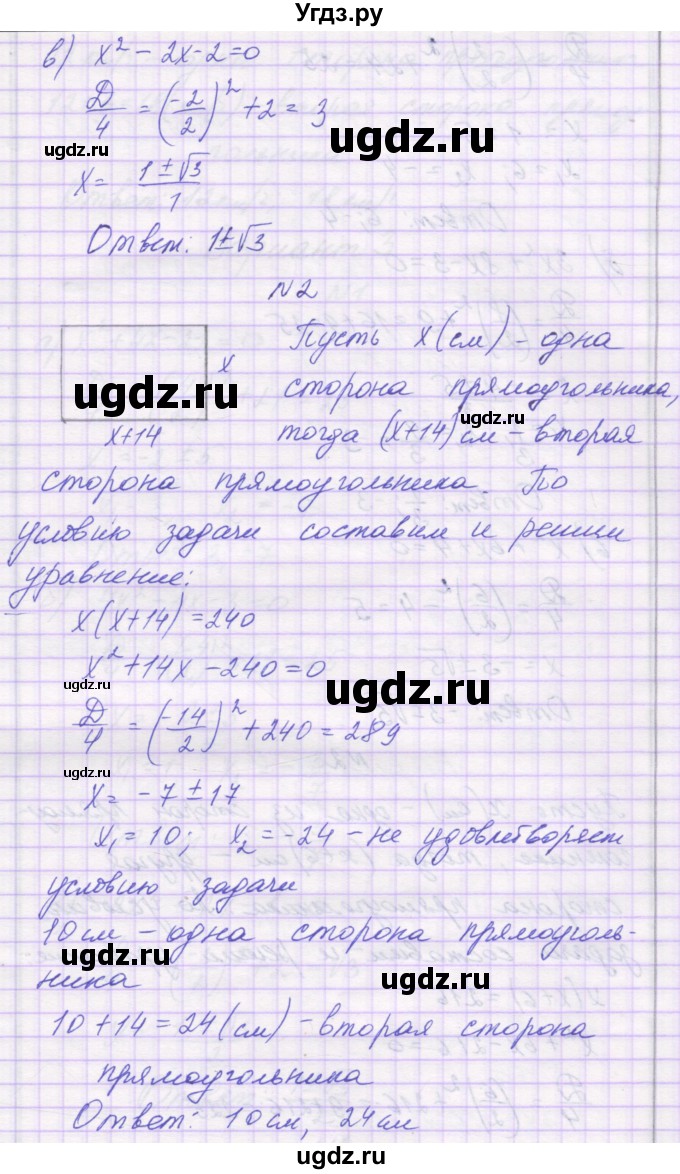 Угдз.ру
в) x² - 2x - 2 = 0
Д/4 = (-2/2)² + 2 = 3
ugdz.ru
ugdz.ru
x = (1 ± √3)/1
ugdz.ru
Ответ: 1 ± √3
N2
Пусть x (см) - одна
x
ugdz.ru
сторона прямоугольника,
ugdz.ru
x+14
тогда (x+14) см - вторая
сторона прямоугольника. По
условию задачи составим и решим
уравнение:
x(x+14) = 240
x² + 14x - 240 = 0
ugdz.ru
ugdz.ru
Д/4 = (-14/2)² + 240 = 289
ugdz.ru
x = -7 ± 17
x₁ = 10; x₂ = -24 - не удовлетворяет
условию задачи
10 см - одна сторона прямоуголь-
ugdz.ru
ника
ugdz.ru
10 + 14 = 24 (см) - вторая сторона
ugdz.ru
прямоугольника
Ответ: 10 см, 24 см
ugdz.ru